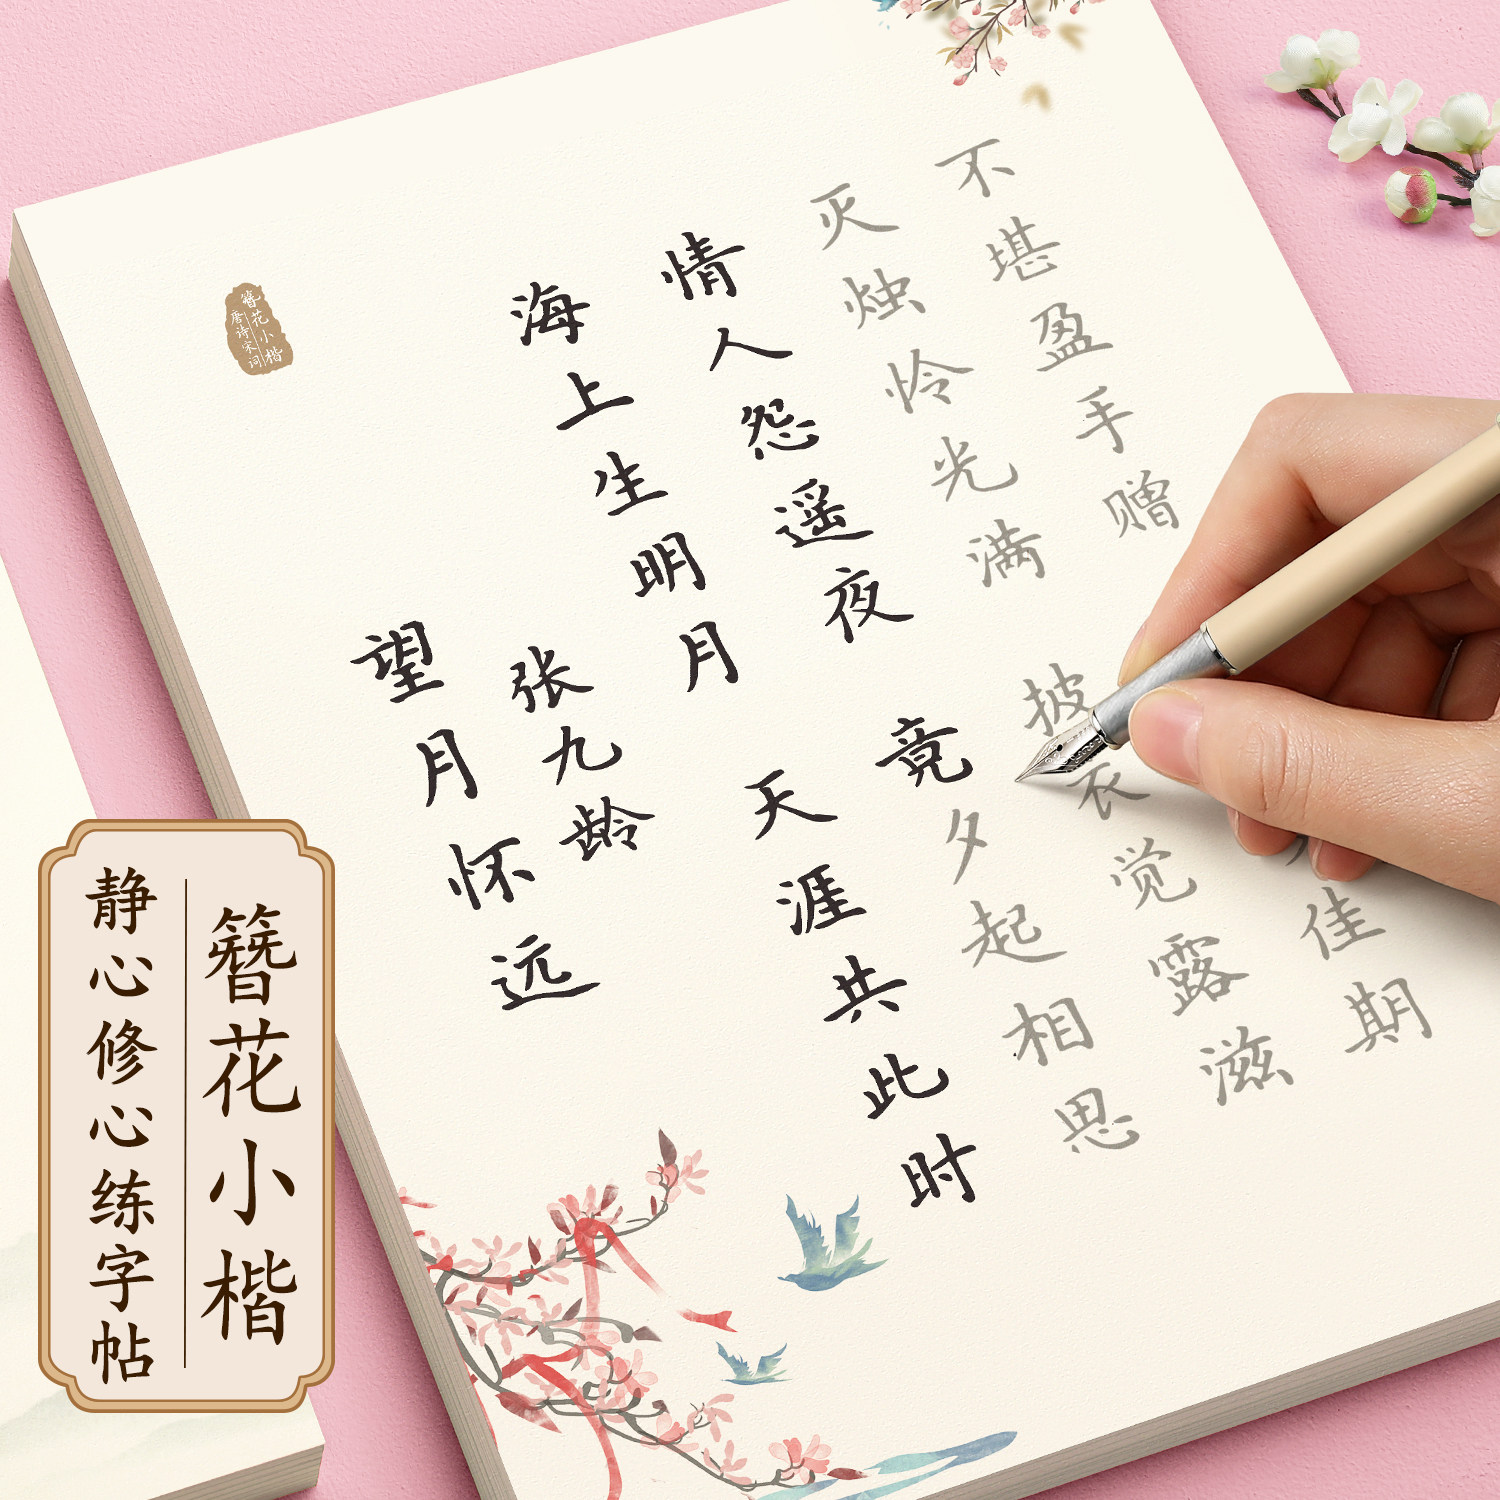 望月怀远
张九龄
海上生明月
天涯共此时
情人怨遥夜
竟夕起相思
灭烛怜光满
披衣觉露滋
不堪盈手赠
佳期
簪花小楷
唐诗宋词
簪花小楷
静心修心练字帖